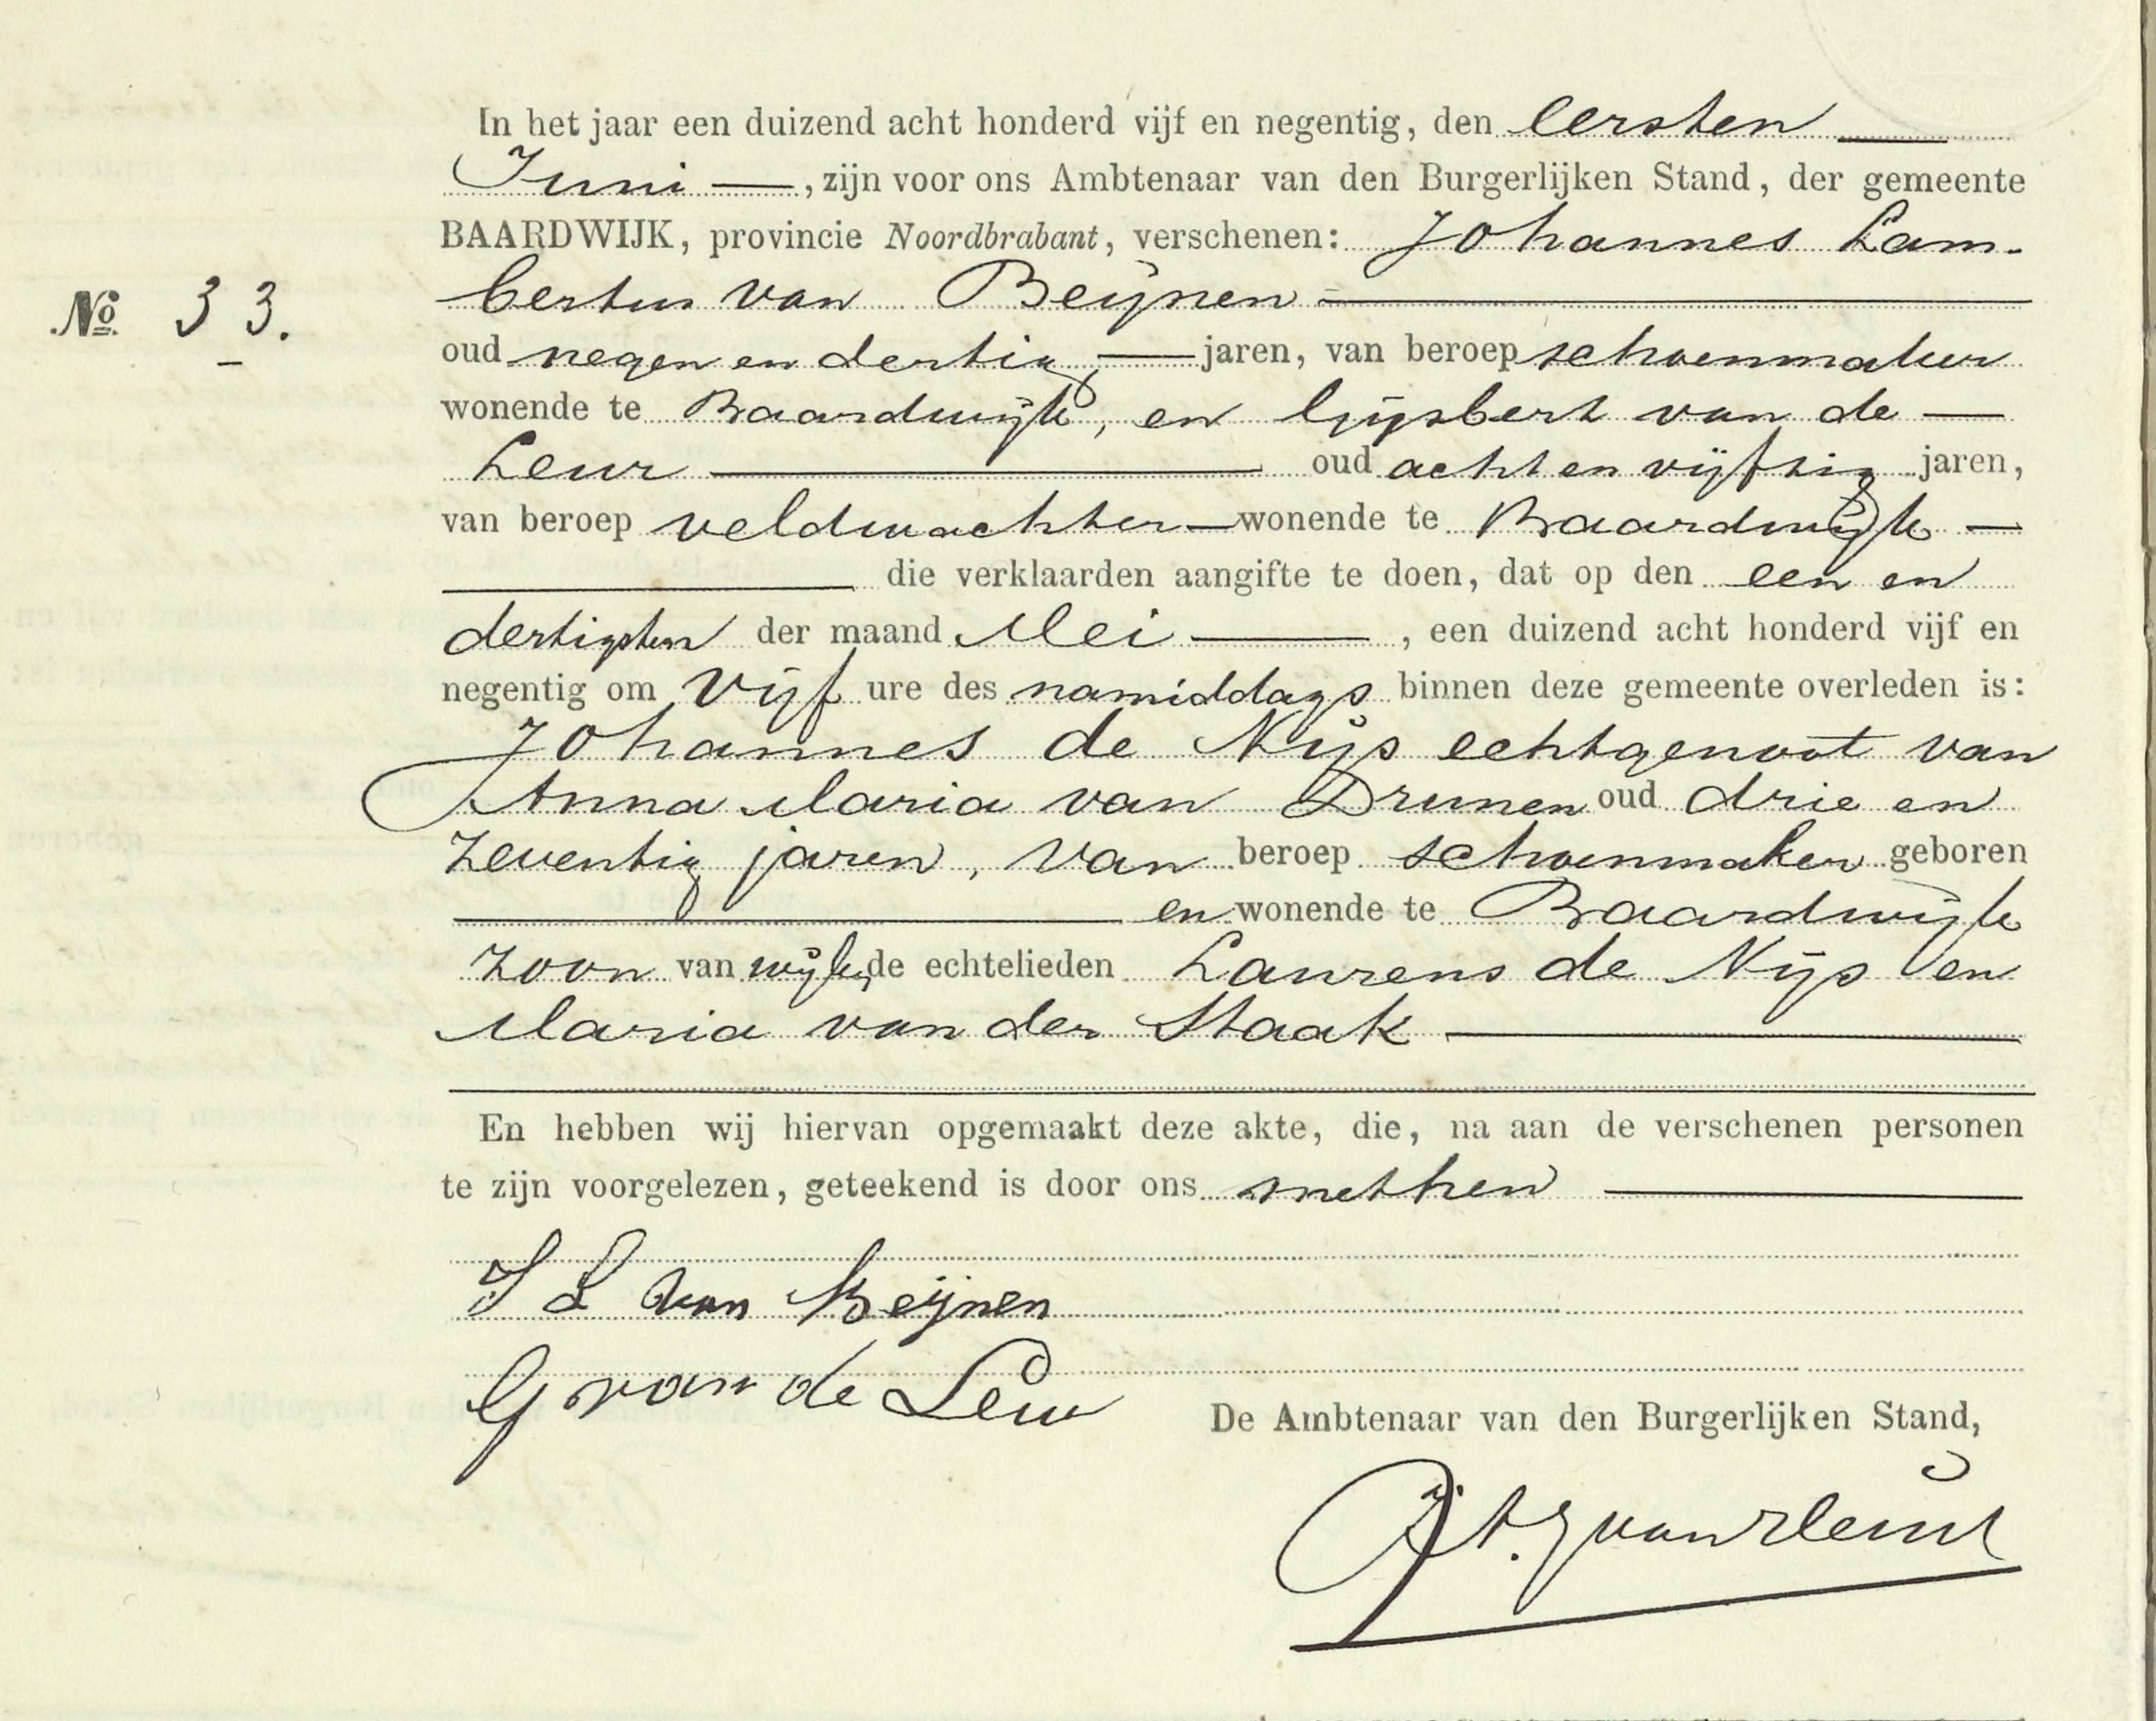 In het jaar een duizend acht honderd vijf en negentig, den eersten
Juni —, zijn voor ons Ambtenaar van den Burgerlijken Stand, der gemeente
BAARDWIJK, provincie Noordbrabant, verschenen: Johannes Lam-
bertus van Beijnen
No 33.
oud negen en dertig, — jaren, van beroep schoenmaker
wonende te Baardwijk, en Gijsbert van de —
Leur — oud acht en vijftig jaren,
van beroep veldwachter — wonende te Baardwijk —
— die verklaarden aangifte te doen, dat op den een en
dertigsten der maand Mei —, een duizend acht honderd vijf en
negentig om vijf ure des namiddags binnen deze gemeente overleden is:
Johannes de Nijs echtgenoot van
Anna Maria van Drunen oud drie en
zeventig jaren, van beroep schoenmaker geboren
— en wonende te Baardwijk
zoon van wijlen de echtelieden Laurens de Nijs en
Maria van der Staak —
En hebben wij hiervan opgemaakt deze akte, die, na aan de verschenen personen
te zijn voorgelezen, geteekend is door ons met hen —
J L van Beijnen
G van de Leur
De Ambtenaar van den Burgerlijken Stand,